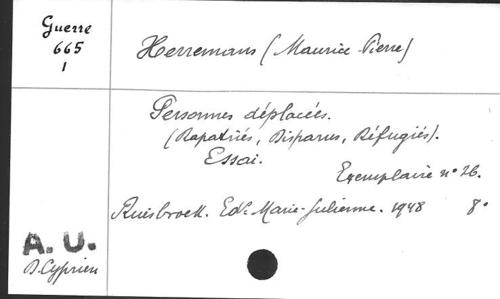 Guerre
665
1
Herremans (Maurice-Pierre)
Personnes déplacées.
(Rapatriés, Disparus, Réfugiés).
Essai.
Exemplaire n° 26.
Ruisbroek. Ed.s Marie-Julienne. 1948 8°
A.U.
D. Cyprien